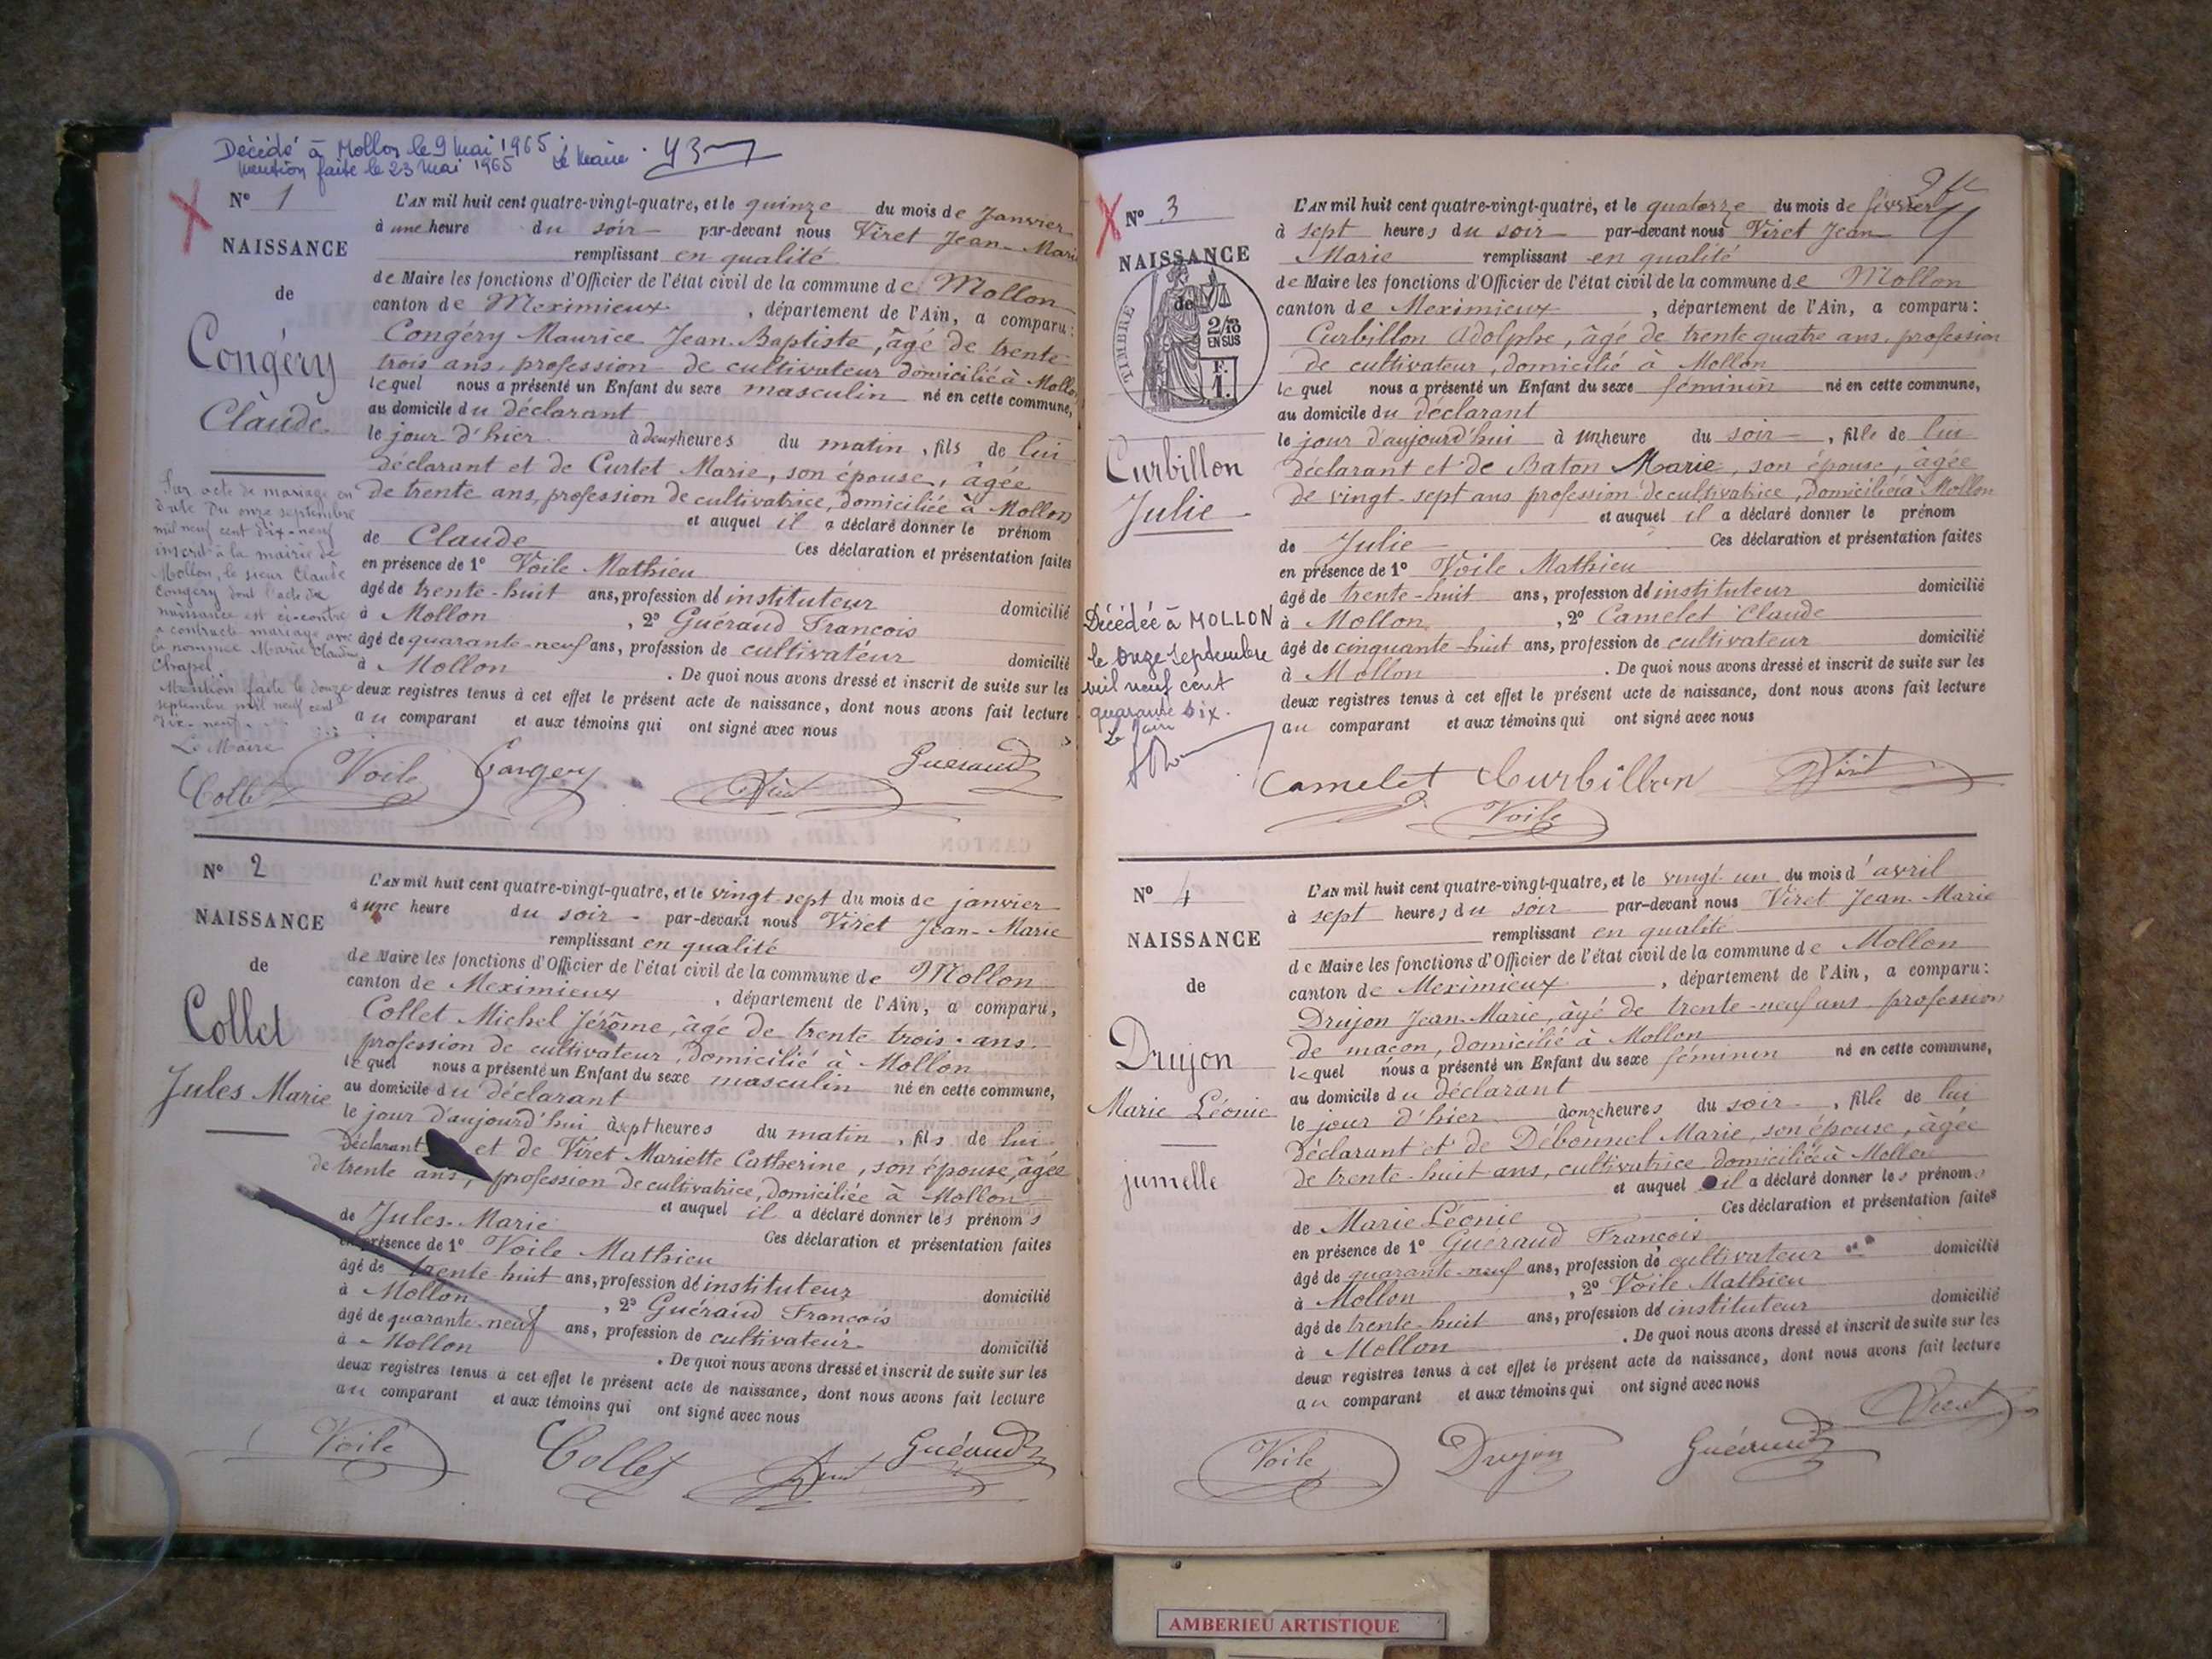 Décédé à Mollon le 9 Mai 1965
Mention faite le 23 Mai 1965 Le Maire
N° 1
NAISSANCE
de
Congéry
Claude
Par acte de mariage en
date du onze septembre
mil neuf cent dix-neuf
inscrit à la mairie de
Mollon, le sieur Claude
Congéry dont l'acte de
naissance est ci-contre
a contracté mariage avec
la nommée Marie Claudine
Chapel
Mention faite le douze
septembre mil neuf cent
dix-neuf.
Le Maire
Collet
L'AN mil huit cent quatre-vingt-quatre, et le quinze du mois de Janvier
à une heure du soir par-devant nous Viret Jean-Marie
remplissant en qualité
de Maire les fonctions d'Officier de l'état civil de la commune de Mollon
canton de Meximieux, département de l'Ain, a comparu :
Congéry Maurice Jean-Baptiste, âgé de trente
trois ans, profession de cultivateur domicilié à Mollon
lequel nous a présenté un Enfant du sexe masculin né en cette commune,
au domicile du déclarant
le jour d'hier à deux heures du matin, fils de lui
déclarant et de Curtet Marie, son épouse, âgée
de trente ans, profession de cultivatrice, domiciliée à Mollon
et auquel il a déclaré donner le prénom
de Claude Ces déclaration et présentation faites
en présence de 1° Voile Mathieu
âgé de trente-huit ans, profession d'instituteur domicilié
à Mollon, 2° Guéraud François
âgé de quarante-neuf ans, profession de cultivateur domicilié
à Mollon. De quoi nous avons dressé et inscrit de suite sur les
deux registres tenus à cet effet le présent acte de naissance, dont nous avons fait lecture
au comparant et aux témoins qui ont signé avec nous
Voile Congery Viret Guéraud
N° 2
NAISSANCE
de
Collet
Jules Marie
L'AN mil huit cent quatre-vingt-quatre, et le vingt sept du mois de janvier
à une heure du soir par-devant nous Viret Jean-Marie
remplissant en qualité
de Maire les fonctions d'Officier de l'état civil de la commune de Mollon
canton de Meximieux, département de l'Ain, a comparu,
Collet Michel Jérôme, âgé de trente trois ans
profession de cultivateur, domicilié à Mollon
lequel nous a présenté un Enfant du sexe masculin né en cette commune,
au domicile du déclarant
le jour d'aujourd'hui à sept heures du matin, fils de lui
Déclarant et de Viret Mariette Catherine, son épouse, âgée
de trente ans, profession de cultivatrice, domiciliée à Mollon
et auquel il a déclaré donner les prénoms
de Jules-Marie Ces déclaration et présentation faites
en présence de 1° Voile Mathieu
âgé de trente huit ans, profession d'instituteur domicilié
à Mollon, 2° Guéraud François
âgé de quarante-neuf ans, profession de cultivateur domicilié
à Mollon. De quoi nous avons dressé et inscrit de suite sur les
deux registres tenus à cet effet le présent acte de naissance, dont nous avons fait lecture
au comparant et aux témoins qui ont signé avec nous
Voile Collet Viret Guéraud
N° 3
NAISSANCE
de
TIMBRE
2/10
EN SUS
F.
1.
Curbillon
Julie
Décédée à MOLLON
le onze septembre
mil neuf cent
quarante six.
Le Maire
L'AN mil huit cent quatre-vingt-quatre, et le quatorze du mois de février
à sept heures du soir par-devant nous Viret Jean
Marie remplissant en qualité
de Maire les fonctions d'Officier de l'état civil de la commune de Mollon
canton de Meximieux, département de l'Ain, a comparu :
Curbillon Adolphe, âgé de trente quatre ans, profession
de cultivateur, domicilié à Mollon
lequel nous a présenté un Enfant du sexe féminin né en cette commune,
au domicile du déclarant
le jour d'aujourd'hui à une heure du soir, fille de lui
déclarant et de Baton Marie, son épouse, âgée
de vingt-sept ans profession de cultivatrice, domiciliée à Mollon
et auquel il a déclaré donner le prénom
de Julie Ces déclaration et présentation faites
en présence de 1° Voile Mathieu
âgé de trente-huit ans, profession d'instituteur domicilié
à Mollon, 2° Camelet Claude
âgé de cinquante-huit ans, profession de cultivateur domicilié
à Mollon. De quoi nous avons dressé et inscrit de suite sur les
deux registres tenus à cet effet le présent acte de naissance, dont nous avons fait lecture
au comparant et aux témoins qui ont signé avec nous
Camelet Curbillon Viret
Voile
N° 4
NAISSANCE
de
Drujon
Marie Léonie
jumelle
L'AN mil huit cent quatre-vingt-quatre, et le vingt un du mois d'avril
à sept heures du soir par-devant nous Viret Jean-Marie
remplissant en qualité
de Maire les fonctions d'Officier de l'état civil de la commune de Mollon
canton de Meximieux, département de l'Ain, a comparu :
Drujon Jean-Marie, âgé de trente-neuf ans profession
de maçon, domicilié à Mollon
lequel nous a présenté un Enfant du sexe féminin né en cette commune,
au domicile du déclarant
le jour d'hier à onze heures du soir, fille de lui
Déclarant et de Débonnel Marie, son épouse, âgée
de trente-huit ans, cultivatrice domiciliée à Mollon
et auquel il a déclaré donner les prénoms
de Marie Léonie Ces déclaration et présentation faites
en présence de 1° Guéraud François
âgé de quarante-neuf ans, profession de cultivateur domicilié
à Mollon, 2° Voile Mathieu
âgé de trente-huit ans, profession d'instituteur domicilié
à Mollon. De quoi nous avons dressé et inscrit de suite sur les
deux registres tenus à cet effet le présent acte de naissance, dont nous avons fait lecture
au comparant et aux témoins qui ont signé avec nous
Voile Drujon Guéraud Viret
AMBERIEU ARTISTIQUE